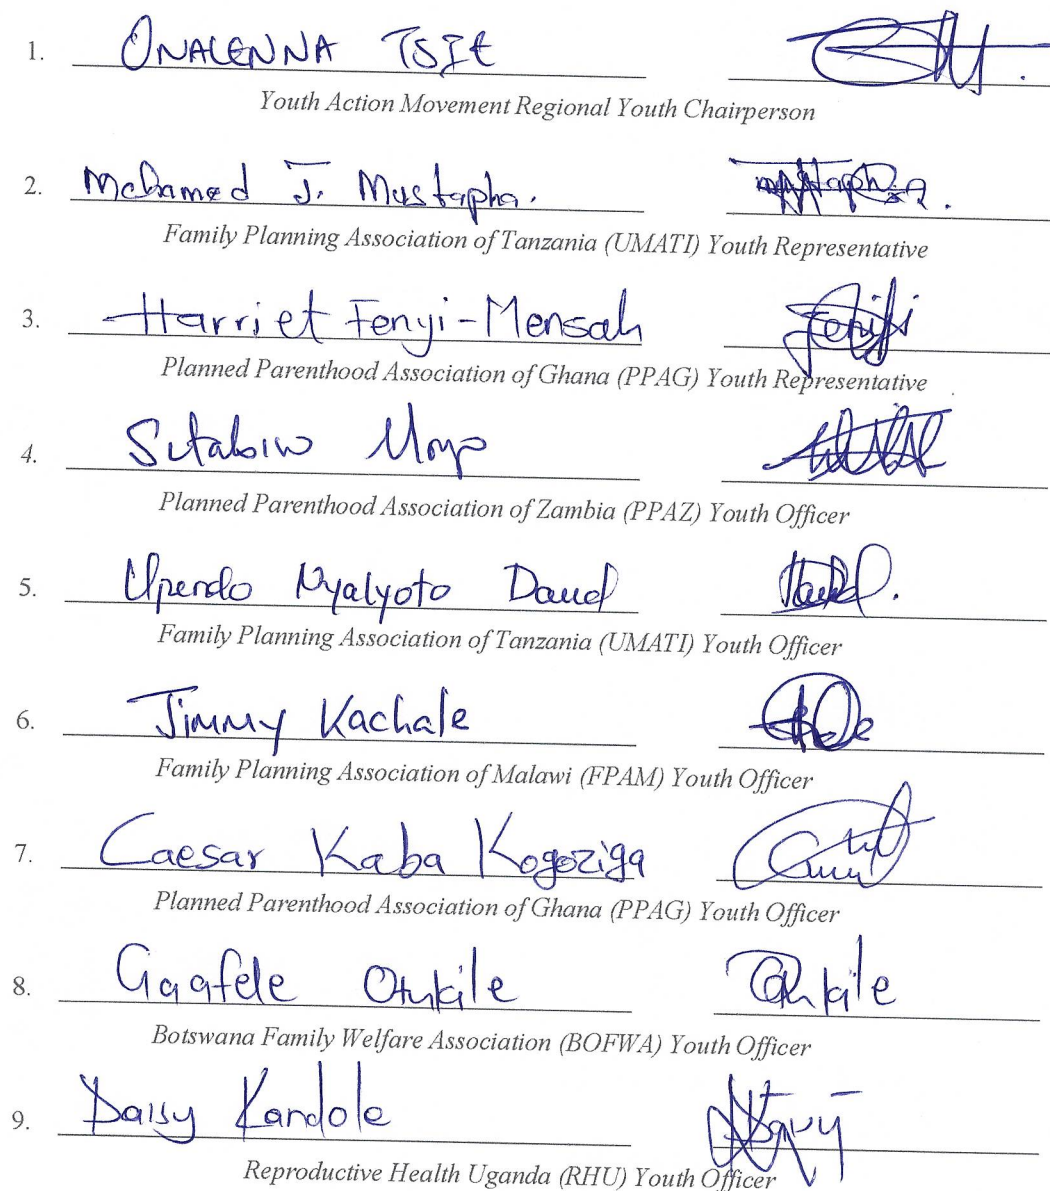 1. ONALENNA TSIE
Youth Action Movement Regional Youth Chairperson
2. Mohamed J. Mustapha.
Family Planning Association of Tanzania (UMATI) Youth Representative
3. Harriet Fenyi-Mensah
Planned Parenthood Association of Ghana (PPAG) Youth Representative
4. Moyo
Planned Parenthood Association of Zambia (PPAZ) Youth Officer
5. Upendo Nyalyoto Daud
Family Planning Association of Tanzania (UMATI) Youth Officer
6. Jimmy Kachale
Family Planning Association of Malawi (FPAM) Youth Officer
7. Caesar Kaba Kogoziga
Planned Parenthood Association of Ghana (PPAG) Youth Officer
8. Gaafele Otukile Otukile
Botswana Family Welfare Association (BOFWA) Youth Officer
9. Daisy Kandole
Reproductive Health Uganda (RHU) Youth Officer